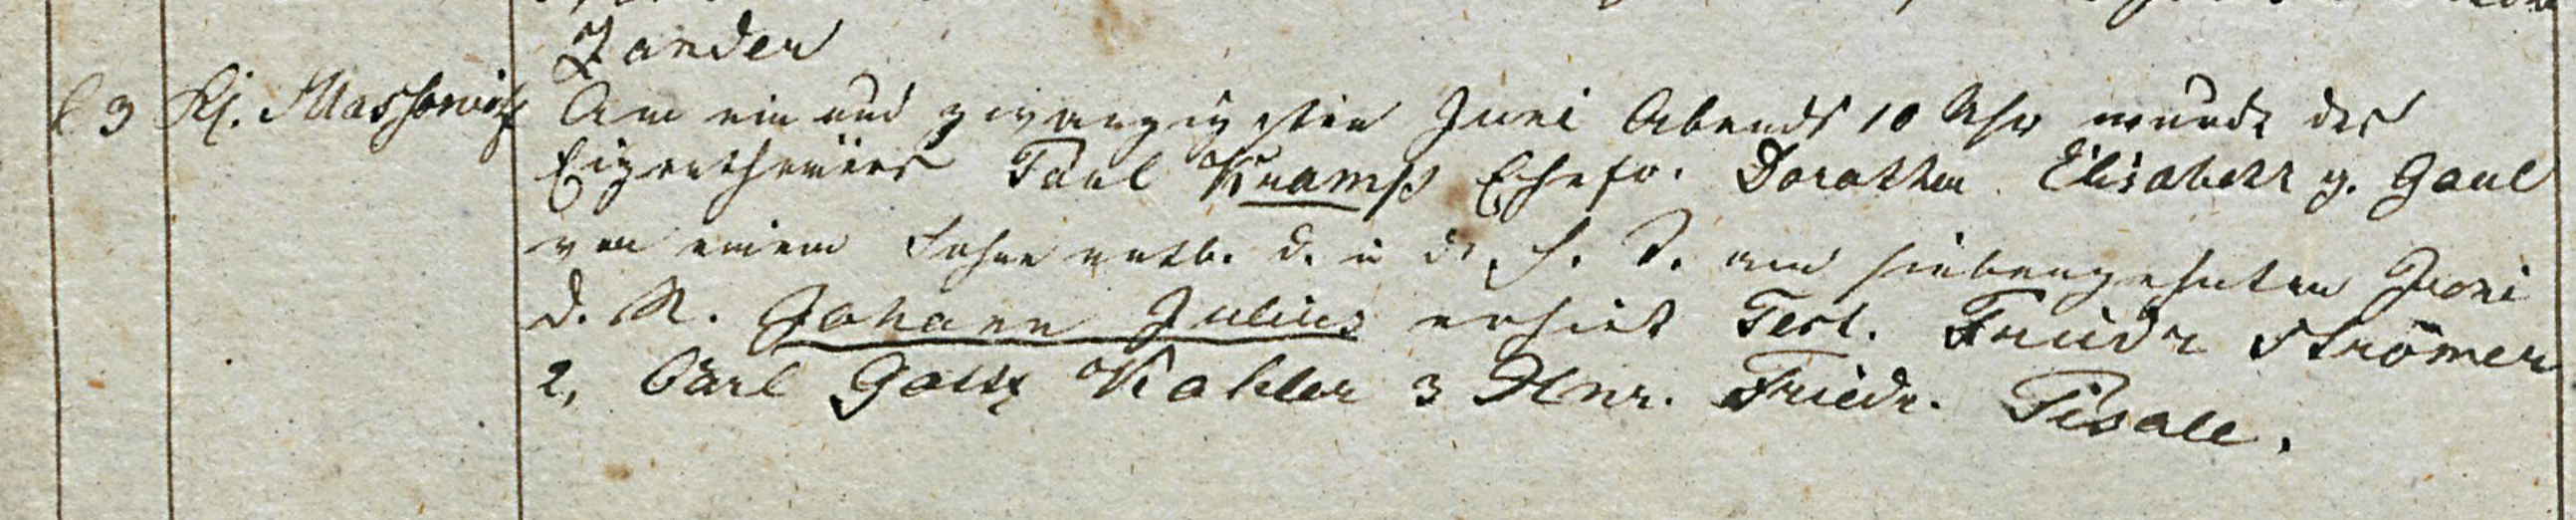 Zander
63 Kl. Massowitz Am ein und zwanzigsten Juni Abends 10 Uhr wurde des
Eigenthümers Paul Knamp Ehefr. Dorothea Elisabeth g. Gaul
von einem Sohne entb. d. in d. h. T. am siebenzehnten Juni
d. N. Johann Julius erhielt Test. Friedr Strömer
2, Carl Gottf Kohler 3 Hnr. Friedr. Pisall.